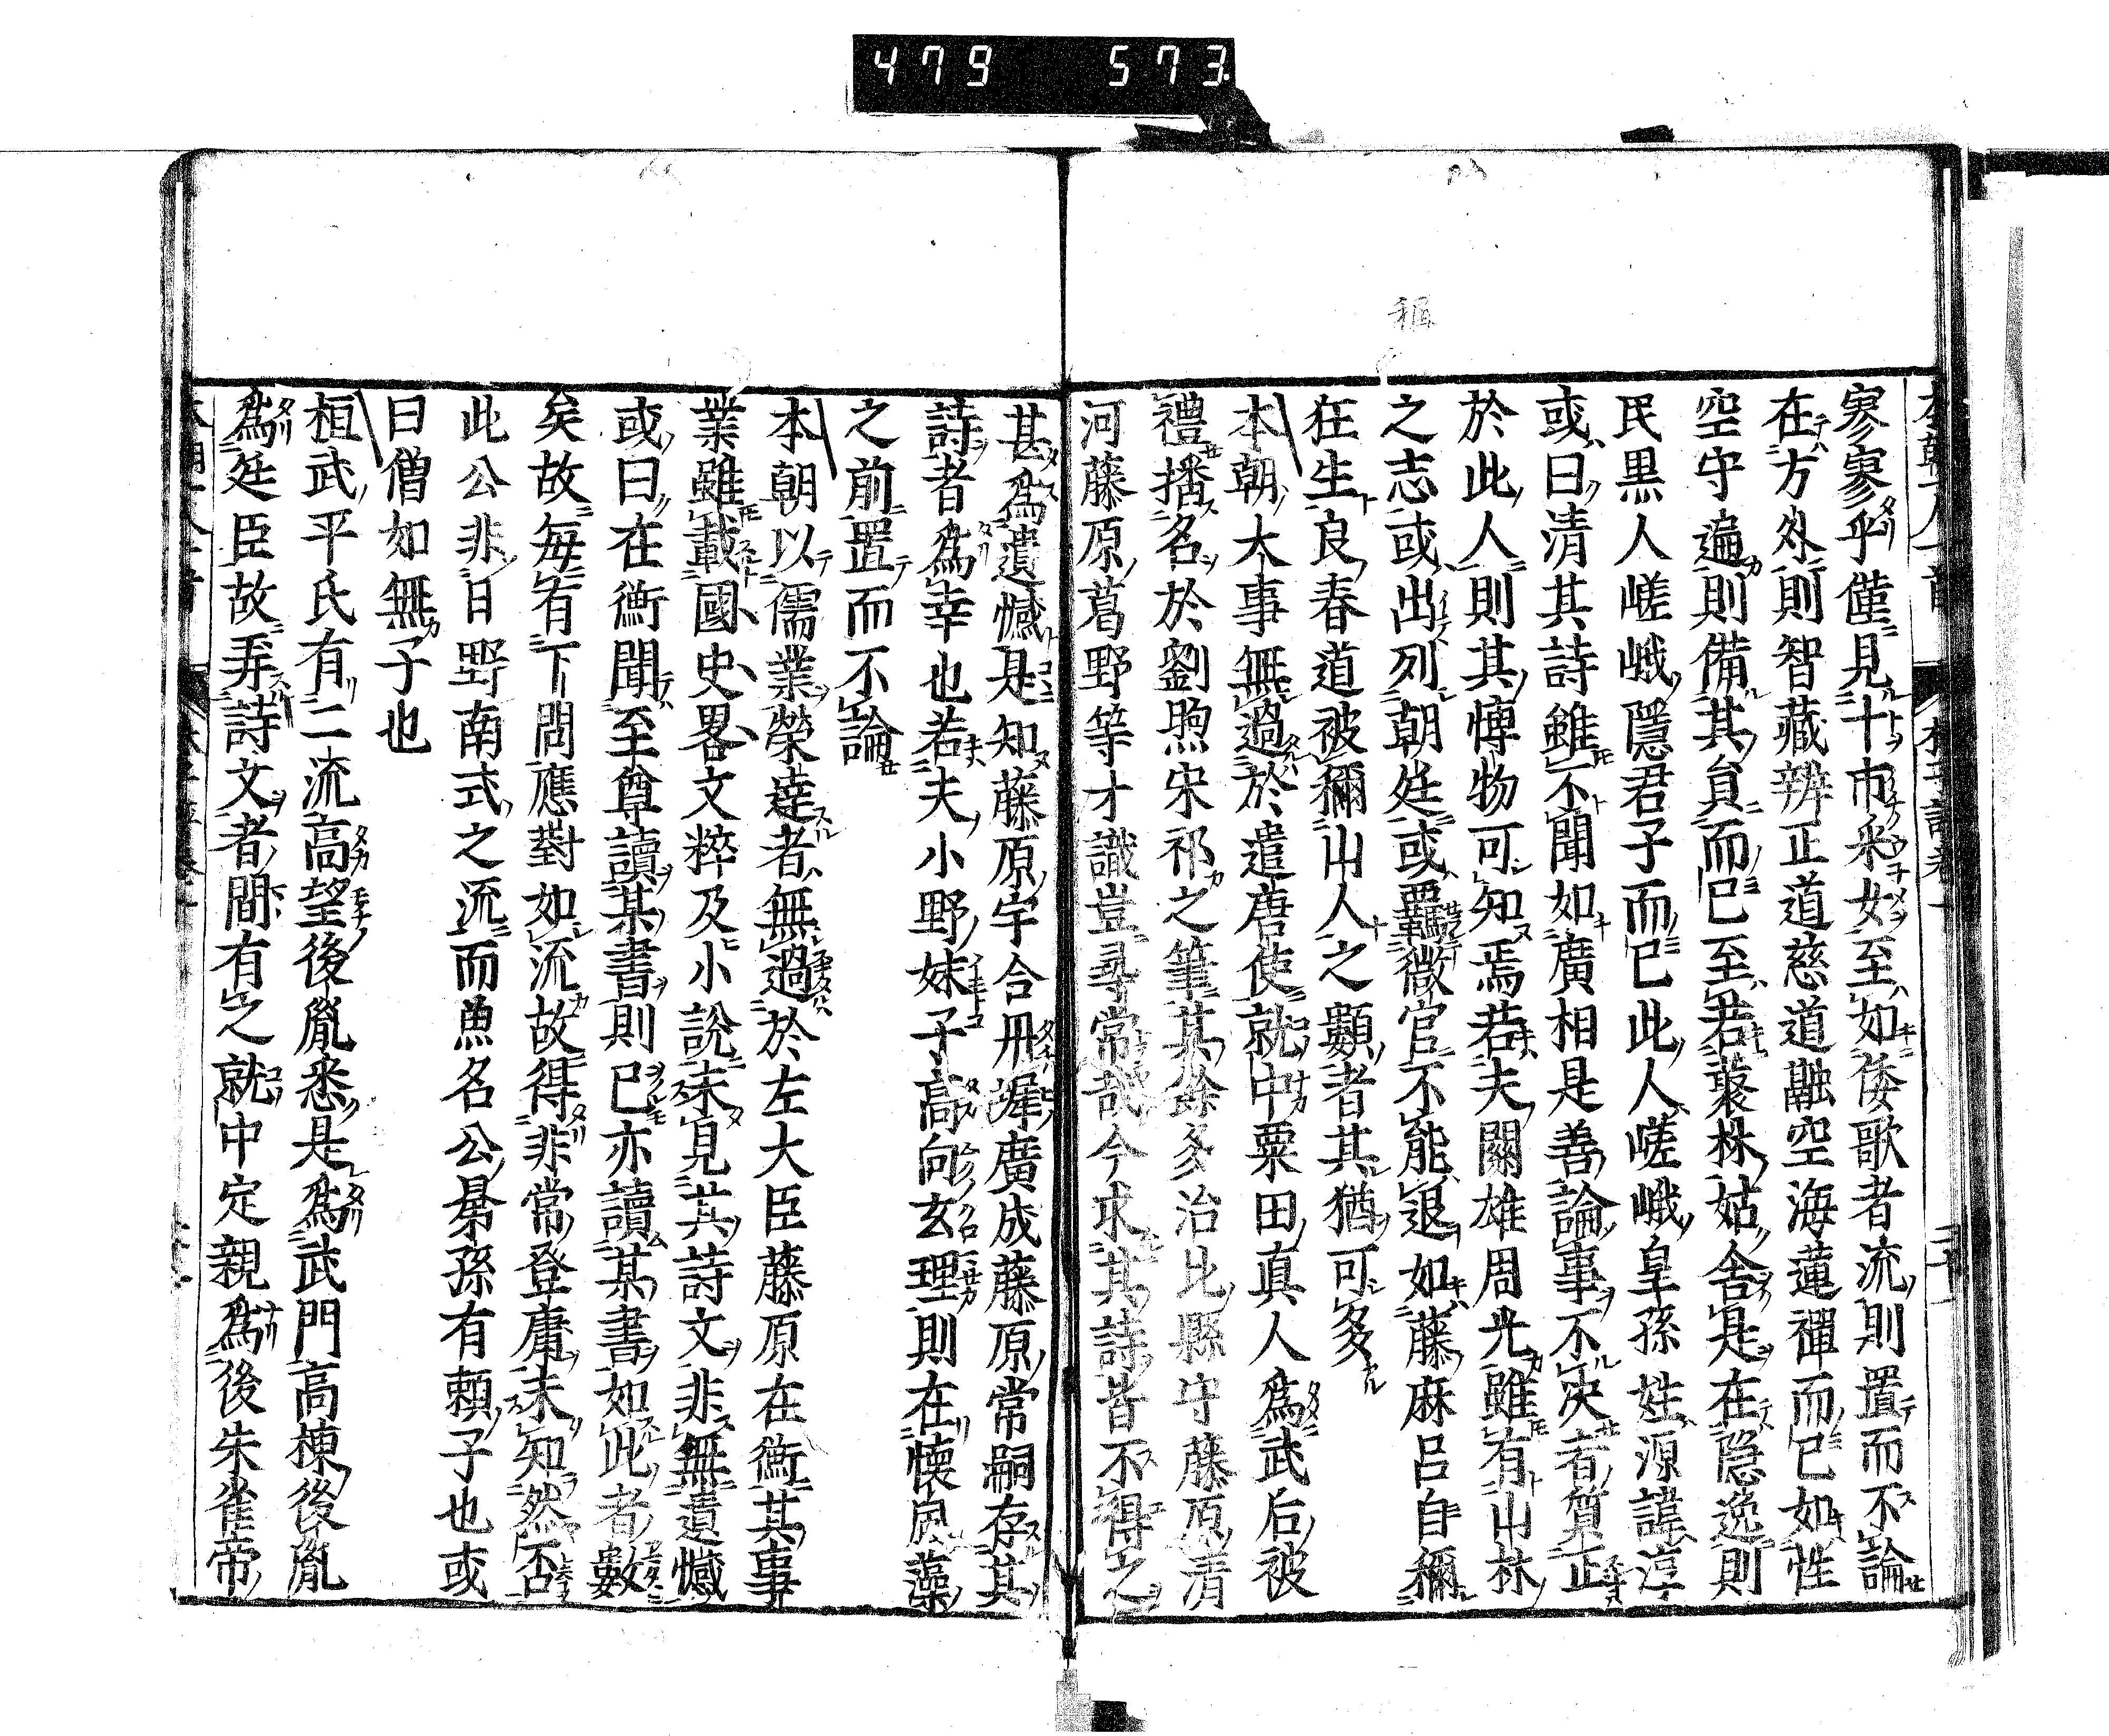 479 573
寥寥乎僅見十市采女至如倭歌者流則置而不論
在方外則智藏辨正道慈道融空海蓮禪而已如性
空守遍則備其員而已至若蓑林姑舍是在隱逸則
民黒人嵯峨隱君子而已此人嵯峨皇孫姓源諱淳
或曰清其詩雖不聞如廣相是善論事不决者算正
於此人則其博物可知焉若夫關雄周光雖有山林
之志或出列朝廷或覊微官不能退如藤麻呂自稱
狂生良春道被稱山人之顯者其猶可多
本朝大事無過於遣唐使就中粟田真人為武后被
禮播名於劉煦宋祁之筆其餘多治比縣守藤原清
河藤原葛野等才識豈尋常哉今求其詩皆不得之
甚為遺憾是知藤原宇合丹墀廣成藤原常嗣存其
詩者為幸也若夫小野妹子高向玄理則在懷風藻
之前置而不論
本朝以儒業榮達者無過於左大臣藤原在衡其事
業雖載國史畧文粹及小說未見其詩文非無遺憾
或曰在衡聞至尊讀某書則已亦讀某書如此者數
矣故每有下問應對如流故得非常登庸未知然否
此公非日野南式之流而魚名公昜孫有賴子也或
曰僧如無子也
桓武平氏有二流高望後胤悉是為武門高棟後胤
為廷臣故弄詩文者間有之就中定親為後朱雀帝